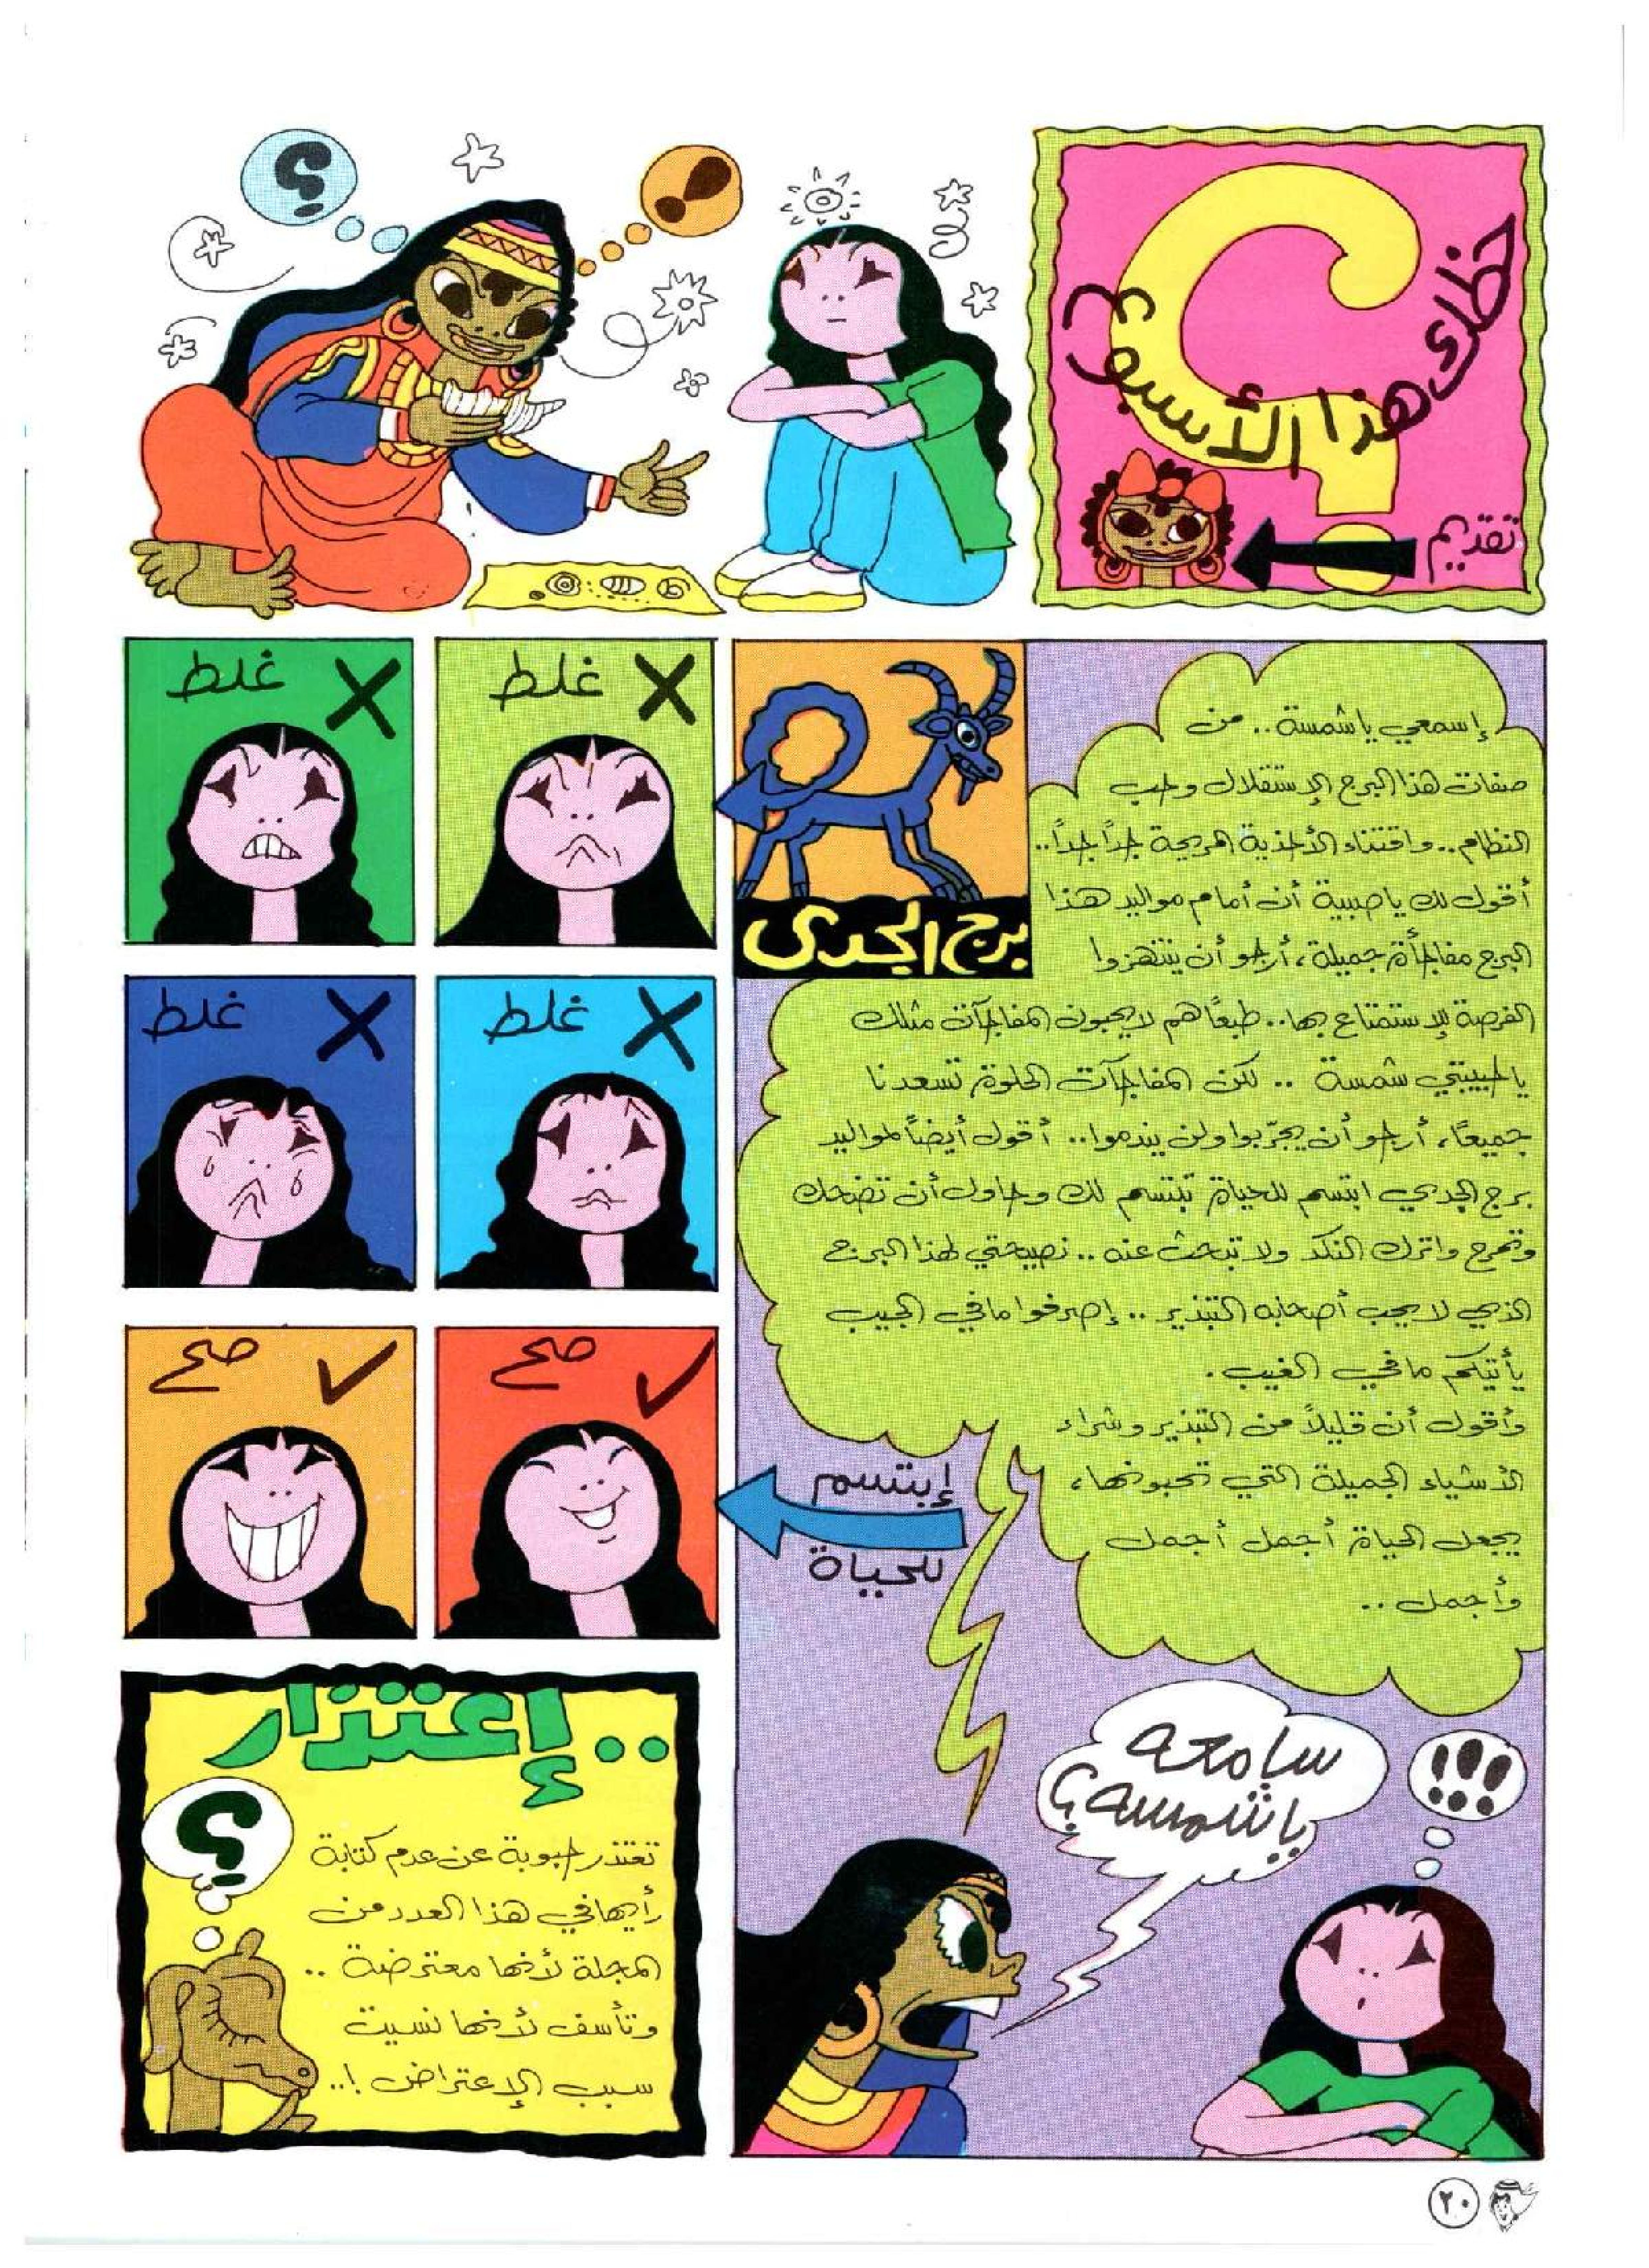 حظك هذا الأسبوع
؟
تقديم
؟
!
برج الجدى
إسمعي يا شمسة .. من
صفات هذا البرج الإستقلال وحب
النظام .. واقتناء الأحذية المريحة جداً جداً ..
أقول لك يا صبية أن أمام مواليد هذا
البرج مفاجأة جميلة، أرجو أن ينتهزوا
الفرصة للإستمتاع بها .. طبعاً هم لا يحبون المفاجآت مثلك
يا حبيبتي شمسة .. لكن المفاجآت الحلوة تسعدنا
جميعاً، أرجو أن يجرّبوا ولن يندموا .. أقول أيضاً لمواليد
برج الجدي ابتسم للحياة تبتسم لك وحاول أن تضحك
وتمرح واترك النكد ولا تبحث عنه .. نصيحتي لهذا البرج
الذي لا يحب أصحابه التبذير .. إصرفوا مافي الجيب
يأتيكم مافي الغيب .
وأقول أن قليلاً من التبذير وشراء
الأشياء الجميلة التي تحبونها،
يجعل الحياة أجمل أجمل
وأجمل ..
غلط
غلط
غلط
غلط
صح
صح
إبتسم
للحياة
سامعه
يا شمسه؟
!!!
.. إعتذار
؟
تعتذر حبوبة عن عدم كتابة
رأيها في هذا العدد من
المجلة لأنها معترضة ..
وتأسف لأنها نسيت
سبب الإعتراض !..
٢٠